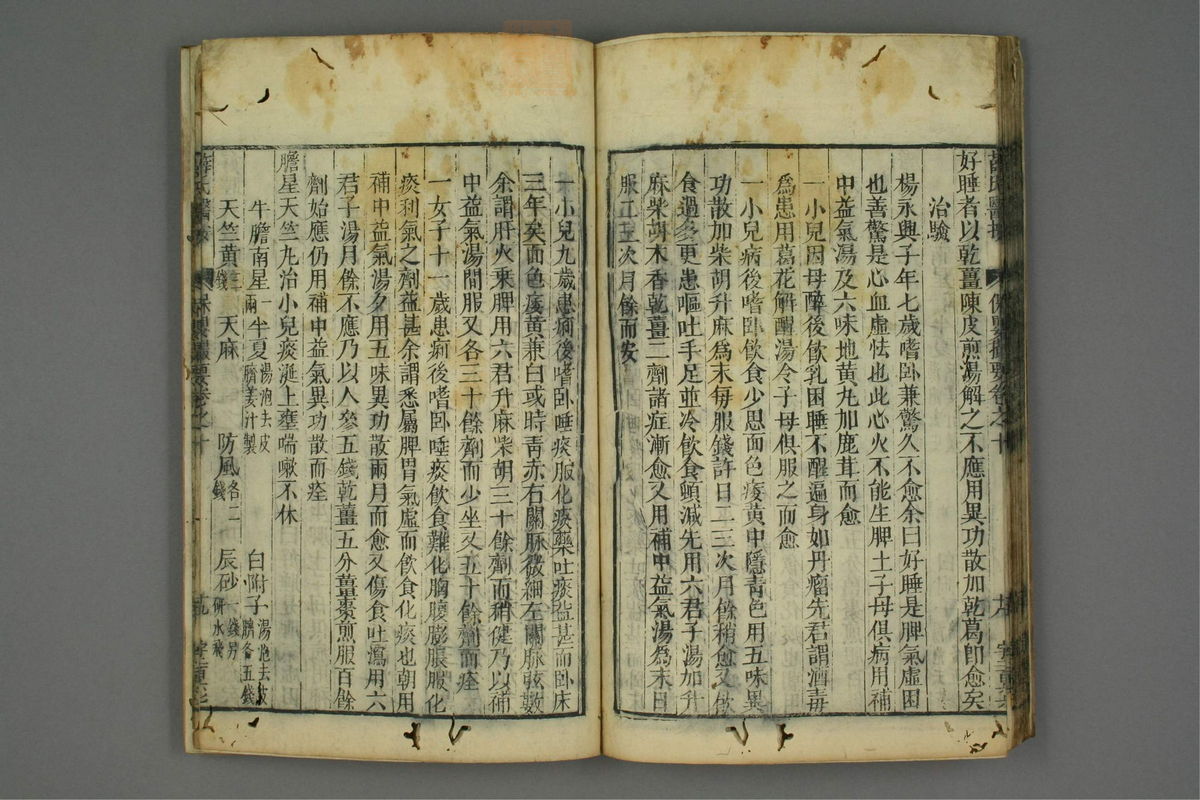 好睡者以乾薑陳皮煎湯解之不應用異功散加乾葛即愈矣
治驗
楊永興子年七歲嗜卧兼驚久不愈余曰好睡是脾氣虛困
也善驚是心血虛怯也此心火不能生脾土子母俱病用補
中益氣湯及六味地黄丸加鹿茸而愈
一小兒因母醉後飲乳困睡不醒遍身如丹瘤先君謂酒毒
爲患用葛花解酲湯令子母俱服之而愈
一小兒病後嗜卧飲食少思面色痿黄中隱青色用五味異
功散加柴胡升麻爲末每服錢許日二三次月餘稍愈又飲
食過多更患嘔吐手足並冷飲食頓減先用六君子湯加升
麻柴胡木香乾薑二劑諸症漸愈又用補中益氣湯爲末日
服二三次月餘而安
一小兒九歲患痢後嗜卧唾痰服化痰藥吐痰益甚而卧床
三年矣面色痿黄兼白或時青赤右關脉微細左關脉弦數
余謂肝火乘脾用六君升麻柴胡三十餘劑而稍健乃以補
中益氣湯間服又各三十餘劑而少坐又五十餘劑而痊
一女子十一歲患痢後嗜卧唾痰飲食難化胸腹膨脹服化
痰利氣之劑益甚余謂悉屬脾胃氣虛而飲食化痰也朝用
補中益氣湯夕用五味異功散兩月而愈又傷食吐瀉用六
君子湯月餘不應乃以人參五錢乾薑五分薑棗煎服百餘
劑始應仍用補中益氣異功散而痊
膽星天竺丸治小兒痰涎上壅喘嗽不休
牛膽南星一兩 半夏湯泡去皮臍薑汁製 白附子湯泡去皮臍各五錢
天竺黄三錢 天麻 防風各二錢 辰砂一錢另研水飛
薛氏醫按 保嬰撮要卷之十